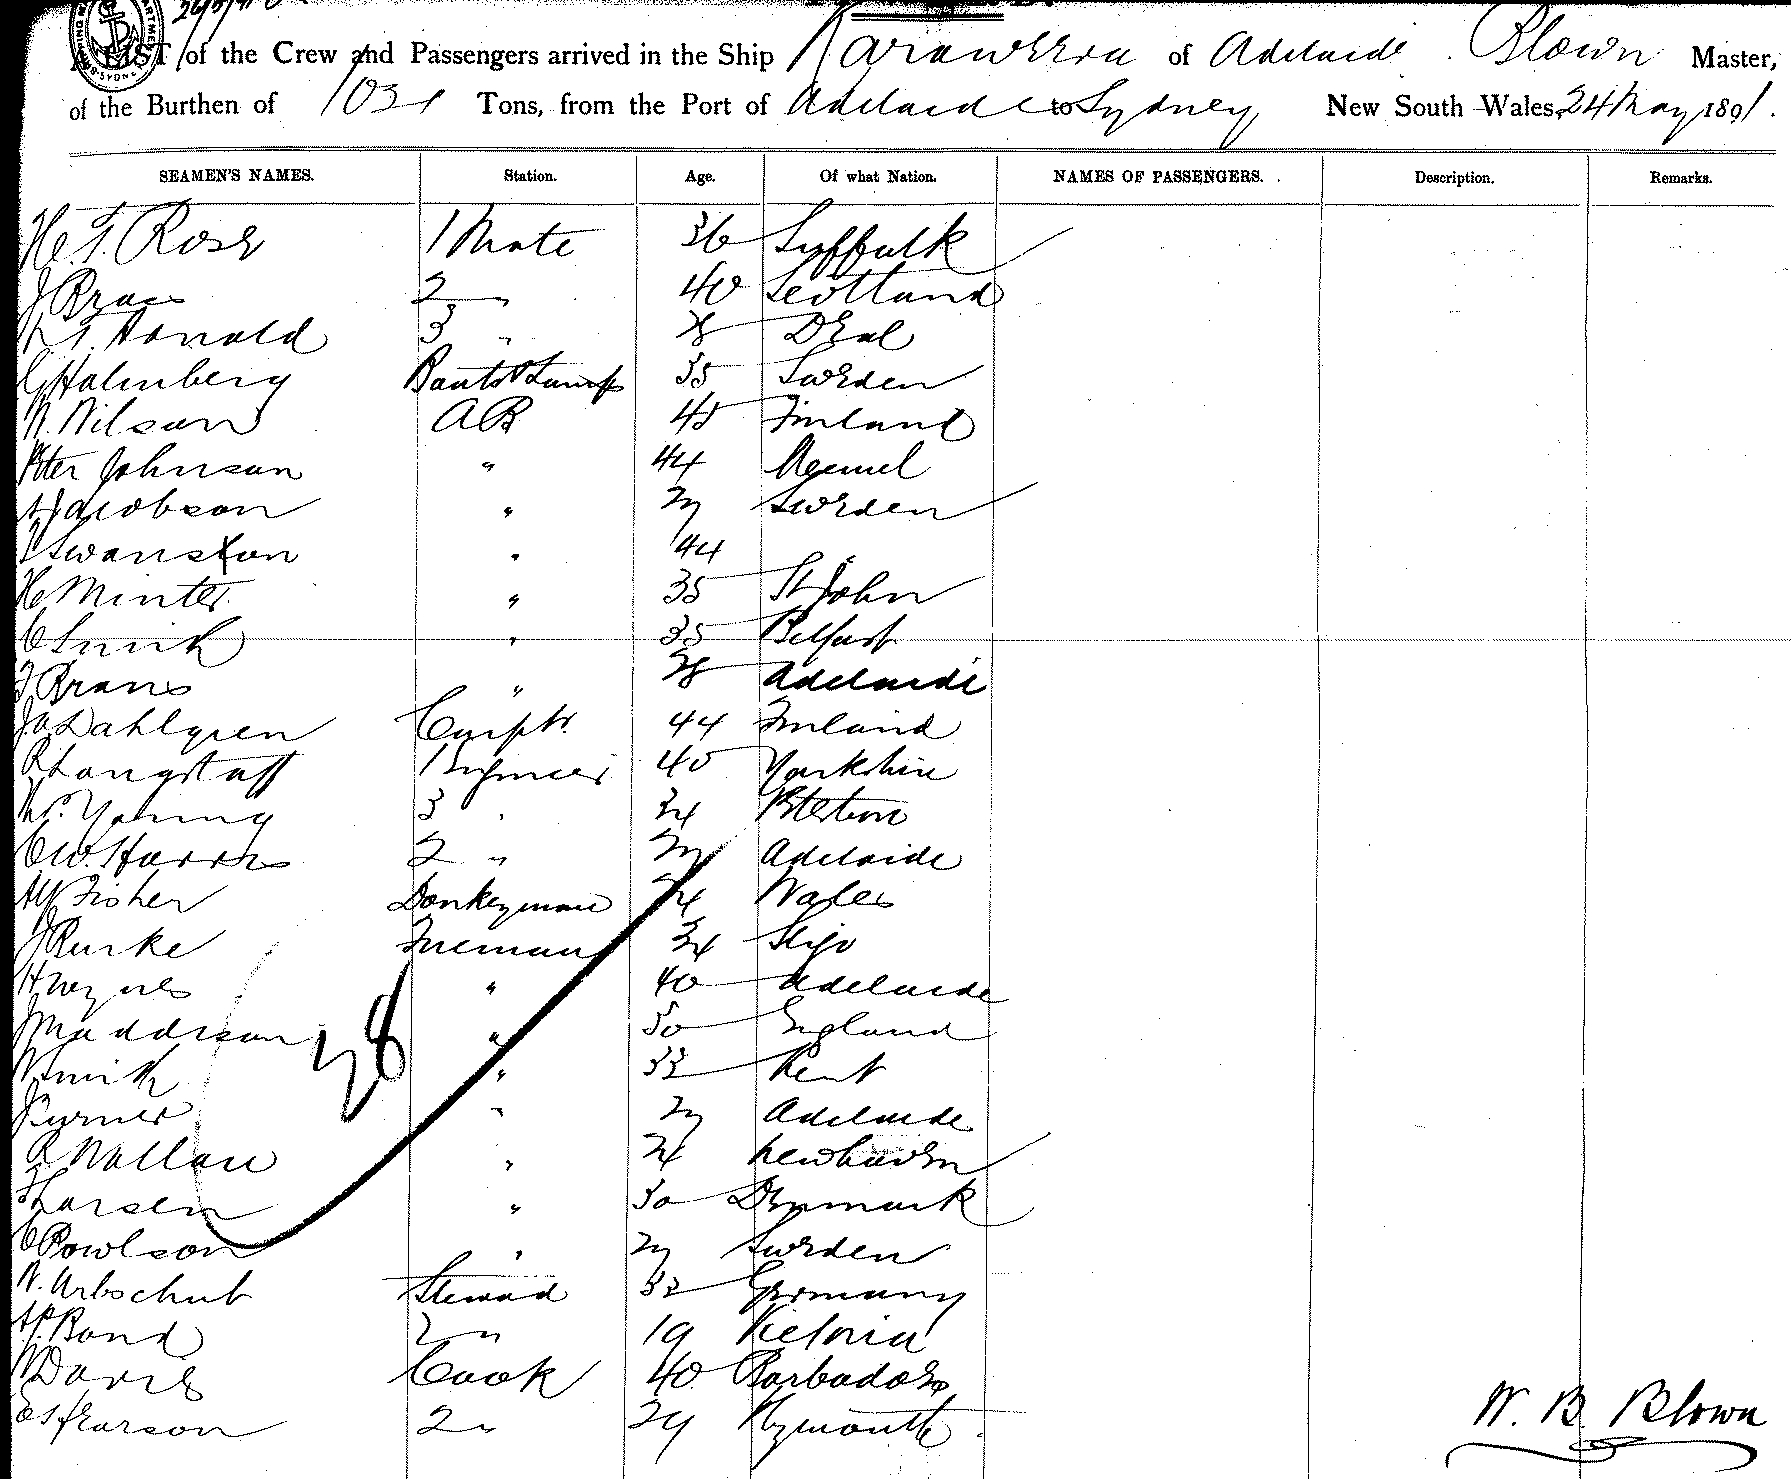 LIST of the Crew and Passengers arrived in the Ship Karaweera of Adelaide Blown Master,
of the Burthen of 1031 Tons, from the Port of Adelaide to Sydney New South Wales, 24 May 1891.
SEAMEN'S NAMES. Station. Age. Of what Nation. NAMES OF PASSENGERS. Description. Remarks.
H. F. Rose 1 Mate 36 Suffulk
J Brace 2 " 40 Scotland
Donald 3 " 28 Deal
G Halmberg 35 Sweden
N. Nilson AB 45 Finland
Peter Johnson " 44 Memel
A Jacobson " 27 Sweden
Swanston " 44
H Minter " 35 St John
C Smith " 35 Belfast
" 28 Adelaide
J. A. Dahlgren Carptr. 44 Finland
R Langstaff 1 Engineer 40 Yorkshire
Young 3 " 34
C W. Harris 2 " 27 Adelaide
Alf Fisher Donkeyman 24 Wales
J Burke Fireman 34 Sligo
Haynes " 40 Adelaide
J Maddison " 50 England
W Smith " 33 Kent
J Turner " 27 Adelaide
R Wallace " 24 Newhaven
F Larsen " 30 Denmark
C Powlson " 27 Sweden
W. Arbschut Steward 32 Germany
A P. Bond 2 " 19 Victoria
W Davies Cook 40 Barbadoes
Pearson 2 " 29 Plymouth
28
W. B. Blown